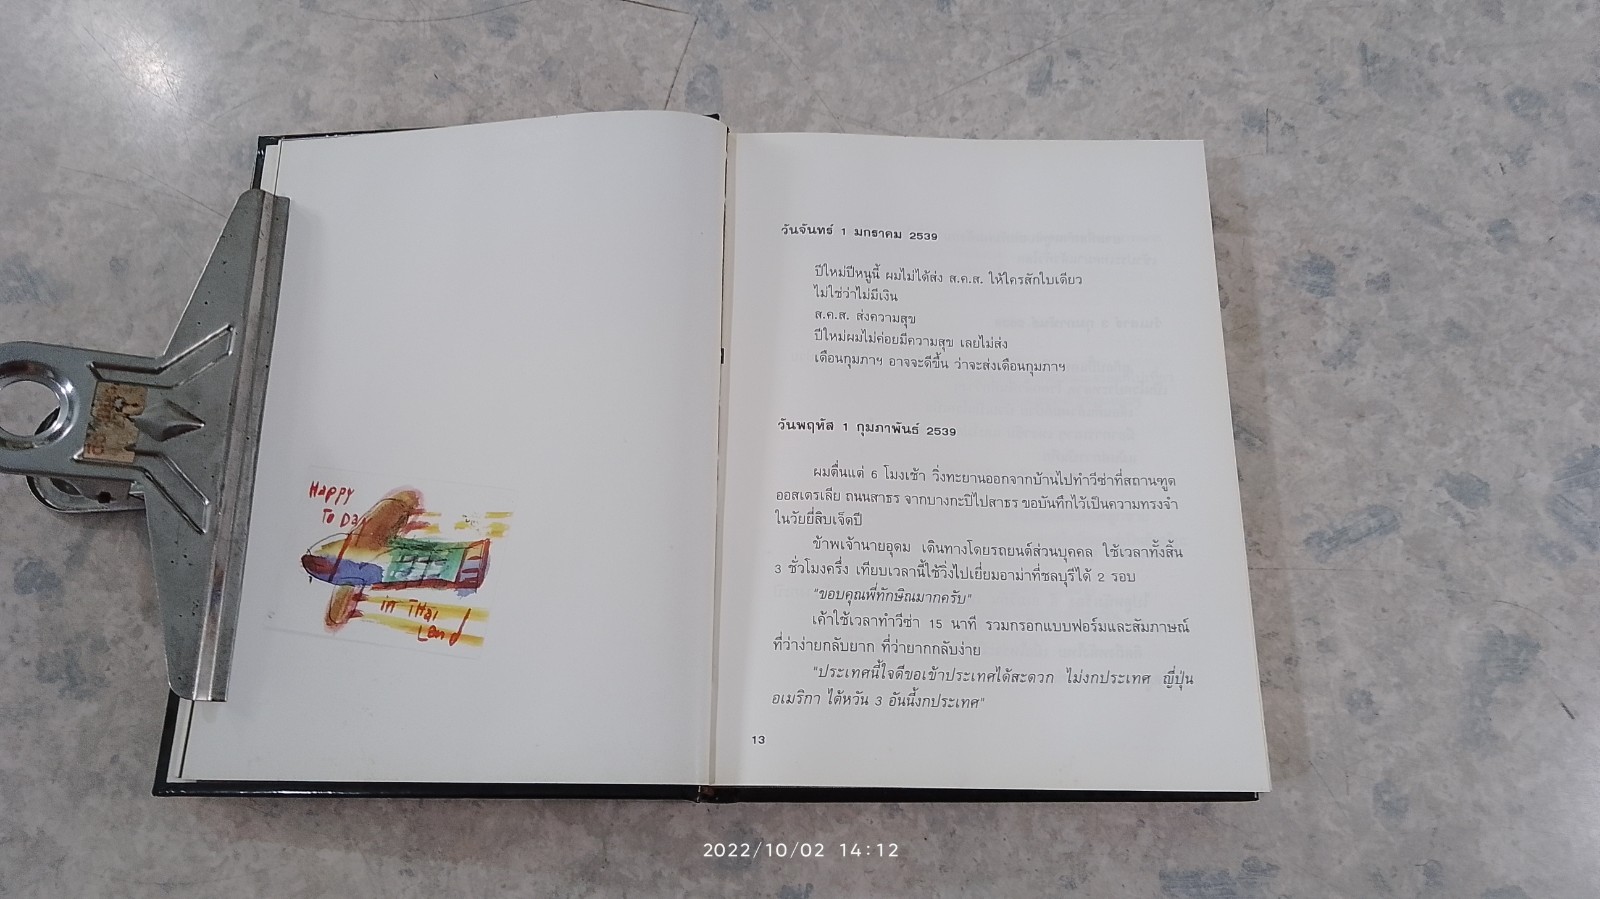 Happy
To Day
in THai
Land
วันจันทร์ 1 มกราคม 2539
ปีใหม่ปีหนูนี้ ผมไม่ได้ส่ง ส.ค.ส. ให้ใครสักใบเดียว
ไม่ใช่ว่าไม่มีเงิน
ส.ค.ส. ส่งความสุข
ปีใหม่ผมไม่ค่อยมีความสุข เลยไม่ส่ง
เดือนกุมภาฯ อาจจะดีขึ้น ว่าจะส่งเดือนกุมภาฯ
วันพฤหัส 1 กุมภาพันธ์ 2539
ผมตื่นแต่ 6 โมงเช้า วิ่งทะยานออกจากบ้านไปทำวีซ่าที่สถานฑูต
ออสเตรเลีย ถนนสาธร จากบางกะปิไปสาธร ขอบันทึกไว้เป็นความทรงจำ
ในวัยยี่สิบเจ็ดปี
ข้าพเจ้านายอุดม เดินทางโดยรถยนต์ส่วนบุคคล ใช้เวลาทั้งสิ้น
3 ชั่วโมงครึ่ง เทียบเวลานี้ใช้วิ่งไปเยี่ยมอาม่าที่ชลบุรีได้ 2 รอบ
"ขอบคุณพี่ทักษิณมากครับ"
เค้าใช้เวลาทำวีซ่า 15 นาที รวมกรอกแบบฟอร์มและสัมภาษณ์
ที่ว่าง่ายกลับยาก ที่ว่ายากกลับง่าย
"ประเทศนี้ใจดีขอเข้าประเทศได้สะดวก ไม่งกประเทศ ญี่ปุ่น
อเมริกา ไต้หวัน 3 อันนี้งกประเทศ"
13
2022/10/02 14:12